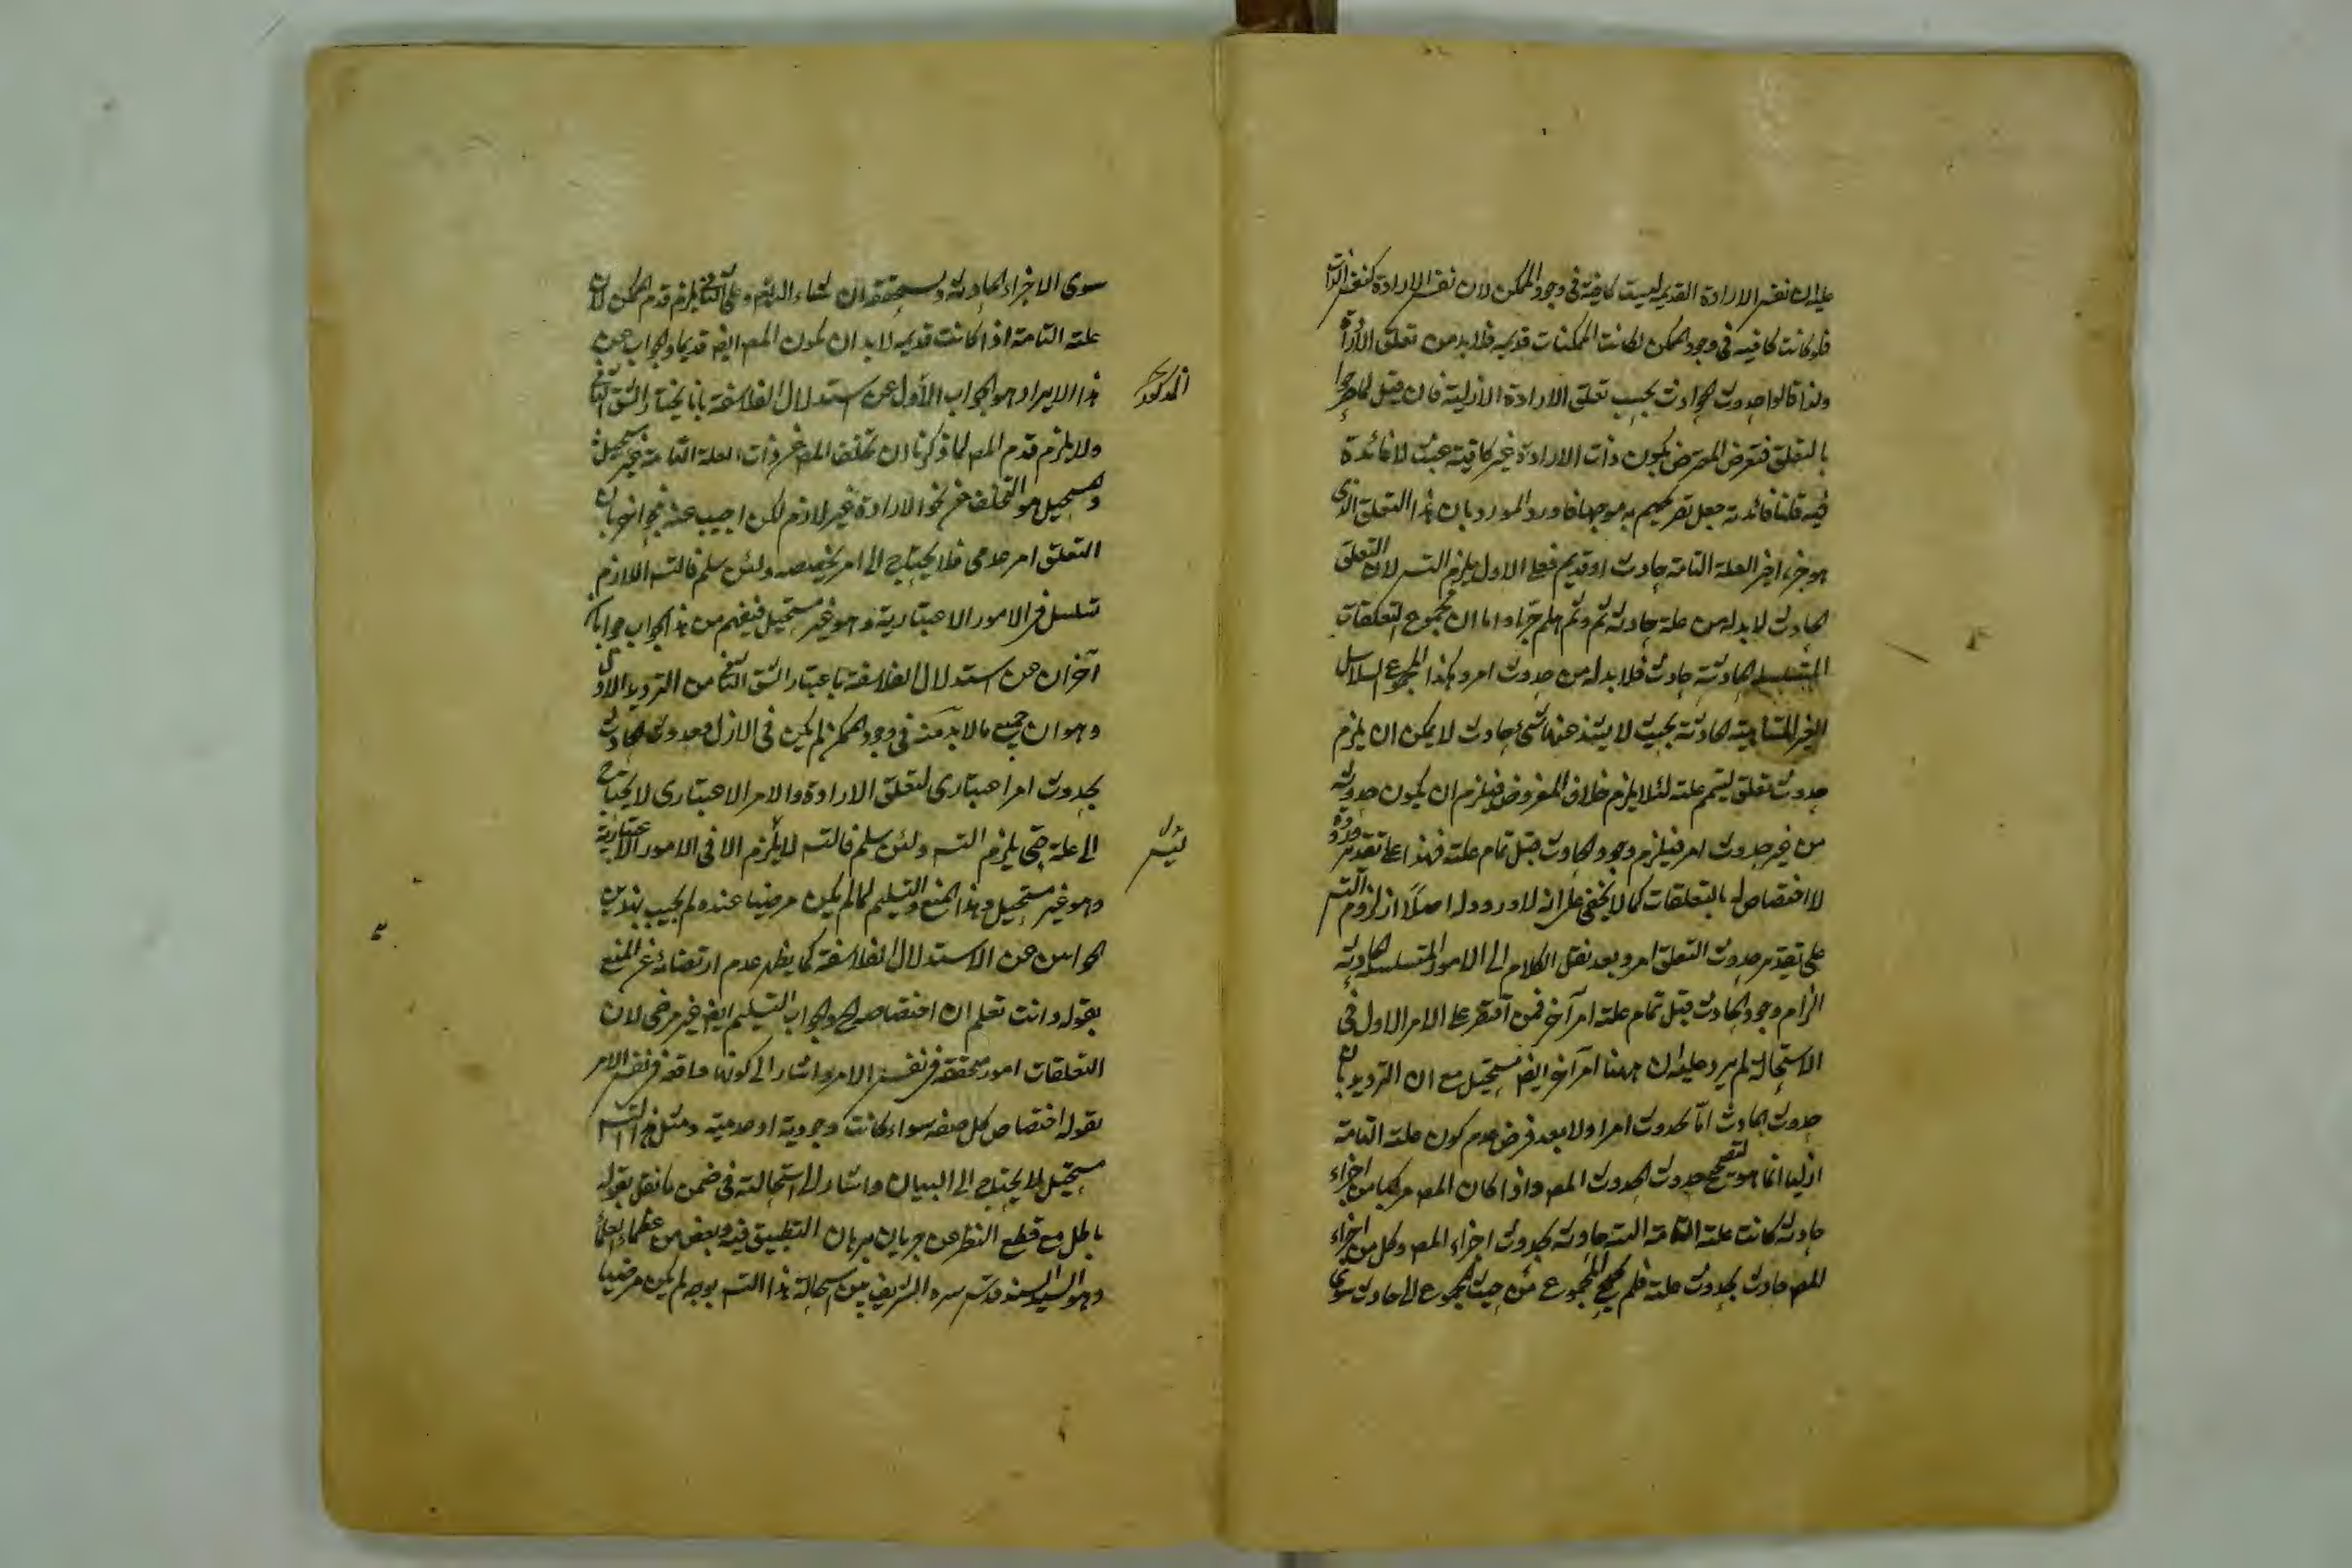 عليه ان نفس الارادة القديمة ليست كافية فى وجود الممكن لان نفس الارادة كنفس الذات
فلو كانت كافية فى وجود الممكن لكانت الممكنات قديمة فلا بد من تعلق الارادة
ولذا قالوا حدوث الحوادث بحسب تعلق الارادة الازلية فان قيل لما صرحوا
بالتعلق فتعرض المعترض بكون ذات الارادة غير كافية عبث لا فائدة
فيه قلنا فائدته جعل تصريحهم به موجها فاورد المورد بان هذا التعلق الذى
هو جزء اخير العلة التامة حادث او قديم فعلى الاول يلزم التسـ لان التعلق
الحادث لا بد له من علة حادثة ثم وثم هلم جرا واما ان مجموع التعلقات
المتسلسلة الحادثة حادث فلا بد له من حدوث امر وهكذا المجموع السلاسل
الغير المتناهية الحادثة بحيث لا يشذ عنها شئ حادث لا يمكن ان يلزم
حدوث تعلق ليتم علته لئلا يلزم خلاف المفروض فيلزم ان يكون حدوثه
من غير حدوث امر فيلزم وجود الحادث قبل تمام علته فهذا على تقدير وروده
لا اختصاص له بالتعلقات كما لا يخفى على انه لا ورود له اصلا اذ لزوم التسـ
على تقدير حدوث التعلق امر وبعد نقل الكلام الى الامور المتسلسلة الحادثة
الزام وجود الحادث قبل تمام علته امر آخر فمن اقتصر على الامر الاول فى
الاستحالة لم يرد عليه ان ههنا امر آخر ايضا مستحيل مع ان الترديد بان
حدوث الحادث اما لحدوث امر او لا بعد فرض عدم كون علته التامة
ازليا انما هو لتصحيح حدوث المعـ واذا كان المعـ مركبا من اجزاء
حادثة كانت علته التامة البتة حادثة بحدوث اجزاء المعـ وكل من اجزاء
المعـ حادث بحدوث علته فلم يحتج المجموع من حيث المجموع الى حادث سوى
سوى الاجزاء الحادثة وسنحققه ان شاء الله تعـ وعلى الثانى يلزم قدم الممكن لان
علته التامة اذا كانت قديمة لا بد ان يكون المعـ ايضا قديما والجواب عن
هذا الايراد هو الجواب الاول عن استدلال الفلاسفة بانا نختار الشق الثانى
المذكور
ولا يلزم قدم المعـ لما ذكرنا ان تخلف المعـ عن ذات العلة التامة غير مستحيل
والمستحيل هو التخلف عن نحو الارادة غير لازم لكن اجيب عنه بجوابين بان
التعلق امر عدمى فلا يحتاج الى امر يخصصه ولئن سلم فالتسـ اللازم
تسلسل فى الامور الاعتبارية وهو غير مستحيل فيفهم من هذا الجواب جوابان
آخران عن استدلال الفلاسفة باعتبار الشق الثانى من الترديد الاول
وهو ان جميع ما لا بد منه فى وجود الممكن لم يكن فى الازل وحدوث الحادث
بحدوث امر اعتبارى لتعلق الارادة والامر الاعتبارى لا يحتاج
الى علة حتى يلزم التسـ ولئن سلم فالتسـ لا يلزم الا فى الامور الاعتبارية
وهو غير مستحيل وهذا المنع والتسليم لما لم يكن مرضيا عنده لم يجب بهذين
الجوابين عن الاستدلال الفلاسفة كما يظهر عدم ارتضائه عن المنع
بقوله وانت تعلم ان اختصاص الجواب التسليم ايضا غير مرضى لان
التعلقات امور متحققة فى نفس الامر واشار الى كونها واقعة فى نفس الامر
بقوله اختصاص كل صفة سواء كانت وجودية او عدمية ومثل هذا التسـ
مستحيل لا يحتاج الى البيان واشار الى استحالته فى ضمن ما نقل بقوله
باطل مع قطع النظر عن جريان برهان التطبيق فيه وبعض من عظماء العلماء
وهو السيد السند قدس سره الشريف بين استحالة هذا التسـ بوجه لم يكن مرضيا